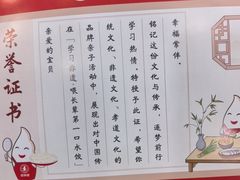 荣誉证书
亲爱的宝贝
在「学习非遗·喂长辈第一口水饺」
品牌亲子活动中，展现出对中国传
统文化、非遗文化、孝道文化的
学习热情，特授予此证，希望你
铭记这份文化与传承，逐梦前行
幸福常伴。